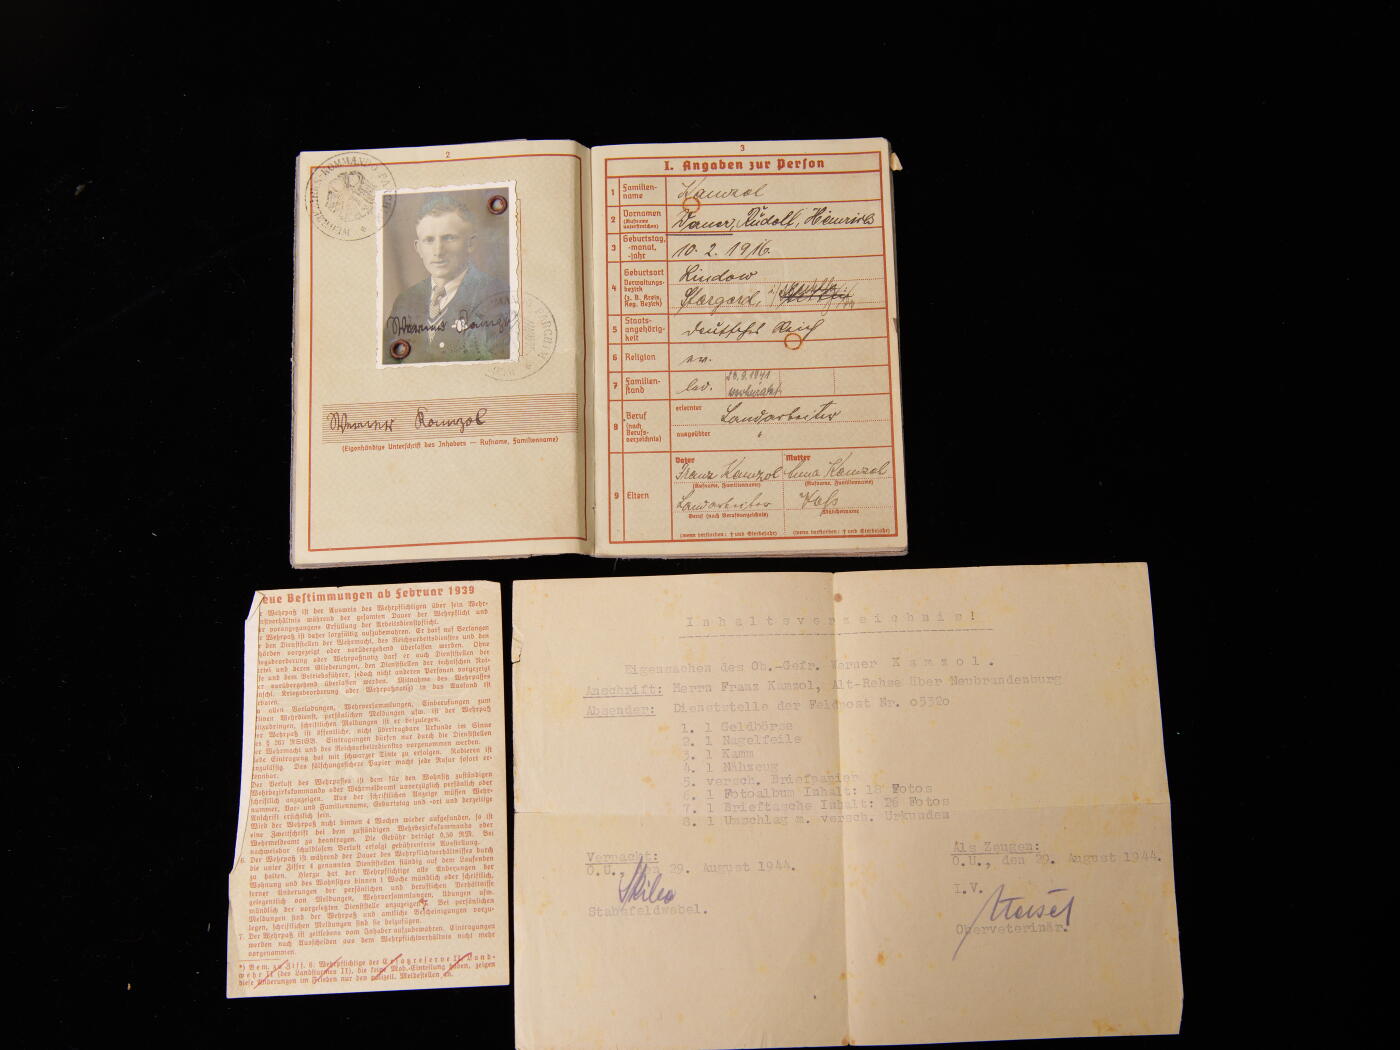 2
WEHRBEZIRKS-KOMMANDO PARCHIM
Werner Kamzol
Werner Kamzol
(Eigenhändige Unterschrift des Inhabers — Rufname, Familienname)
3
I. Angaben zur Person
1 Familien-
name
Kamzol
2 Vornamen
(Rufname
unterstreichen)
Rudolf,
3 Geburtstag,
-monat,
-jahr
10. 2. 1916.
4 Geburtsort
Verwaltungs-
bezirk
(z. B. Kreis,
Reg. Bezirk)
Lindow
Stargard,
5 Staats-
angehörig-
keit
Deutsches Reich
6 Religion
ev.
7 Familien-
stand
led.
verheiratet
8 Beruf
(nach
Berufs-
verzeichnis)
erlernter
Landarbeiter
ausgeübter
"
9 Eltern
Vater
Mutter
Franz Kamzol
Anna Kamzol
(Rufname, Familienname)
(Rufname, Familienname)
Landarbeiter
Voß
Beruf (nach Berufsverzeichnis)
Mädchenname
(wenn verstorben: † und Sterbejahr)
(wenn verstorben: † und Sterbejahr)
eue Bestimmungen ab Februar 1939
r Wehrpaß ist der Ausweis des Wehrpflichtigen über sein Wehr-
nstverhältnis während der gesamten Dauer der Wehrpflicht und
er vorangegangene Erfüllung der Arbeitsdienstpflicht.
r Wehrpaß ist daher sorgfältig aufzubewahren. Er darf auf Verlangen
den Dienststellen der Wehrmacht, des Reichsarbeitsdienstes und den
hörden vorgezeigt oder vorübergehend überlassen werden. Ohne
iegsbeorderung oder Wehrpaßnotiz darf er auch Dienststellen der
rtei und deren Gliederungen, den Dienststellen der technischen Not-
fe und dem Betriebsführer, jedoch nicht anderen Personen vorgezeigt
er vorübergehend überlassen werden. Mitnahme des Wehrpasses
nschl. Kriegsbeorderung oder Wehrpaßnotiz) in das Ausland ist
rboten.
allen Vorladungen, Wehrversammlungen, Einberufungen zum
tiven Wehrdienst, persönlichen Meldungen usw. ist der Wehrpaß
itzubringen, schriftlichen Meldungen ist er beizulegen.
er Wehrpaß ist öffentliche, nicht übertragbare Urkunde im Sinne
es § 267 RStGB. Eintragungen dürfen nur durch die Dienststellen
er Wehrmacht und des Reichsarbeitsdienstes vorgenommen werden.
ede Eintragung hat mit schwarzer Tinte zu erfolgen. Radieren ist
nzulässig. Das fälschungssichere Papier macht jede Rasur sofort er-
kennbar.
Der Verlust des Wehrpasses ist dem für den Wohnsitz zuständigen
Wehrbezirkskommando oder Wehrmeldeamt unverzüglich persönlich oder
schriftlich anzuzeigen. Aus der schriftlichen Anzeige müssen Wehr-
nummer, Vor- und Familienname, Geburtstag und -ort und derzeitige
Anschrift ersichtlich sein.
Wird der Wehrpaß nicht binnen 4 Wochen wieder aufgefunden, so ist
eine Zweitschrift bei dem zuständigen Wehrbezirkskommando oder
Wehrmeldeamt zu beantragen. Die Gebühr beträgt 0,50 RM. Bei
nachweisbar schuldlosem Verlust erfolgt gebührenfreie Ausstellung.
6. Der Wehrpaß ist während der Dauer des Wehrpflichtverhältnisses durch
die unter Ziffer 4 genannten Dienststellen ständig auf dem Laufenden
zu halten. Hierzu hat der Wehrpflichtige alle Änderungen der
Wohnung und des Wohnsitzes binnen 1 Woche mündlich oder schriftlich,
ferner Änderungen der persönlichen und beruflichen Verhältnisse
gelegentlich von Meldungen, Wehrversammlungen, Übungen usw.
mündlich der vorgesetzten Dienststelle anzuzeigen*). Bei persönlichen
Meldungen sind der Wehrpaß und amtliche Bescheinigungen vorzu-
legen, schriftlichen Meldungen sind sie beizufügen.
7. Der Wehrpaß ist zeitlebens vom Inhaber aufzubewahren. Eintragungen
werden nach Ausscheiden aus dem Wehrpflichtverhältnis nicht mehr
vorgenommen.
*) Bem. zu Ziff. 6: Wehrpflichtige der Ersatzreserve II, Land-
wehr II (des Landsturmes II), die keine Mob.-Einteilung haben, zeigen
diese Änderungen im Frieden nur den polizeil. Meldestellen an.
Inhaltsverzeichnis!
Eigensachen des Ob.-Gefr. Werner Kamzol.
Anschrift: Herrn Franz Kamzol, Alt-Rehse über Neubrandenburg
Absender: Dienststelle der Feldpost Nr. o532o
1. 1 Geldbörse
2. 1 Nagelfeile
3. 1 Kamm
4. 1 Nähzeug
5. versch. Briefpapier
6. 1 Fotoalbum Inhalt: 18 Fotos
7. 1 Brieftasche Inhalt: 26 Fotos
8. 1 Umschlag m. versch. Urkunden
Verpackt:
O.U., den 29. August 1944.
Stabsfeldwebel.
Als Zeugen:
O.U., den 29. August 1944.
I.V.
Oberveterinär.